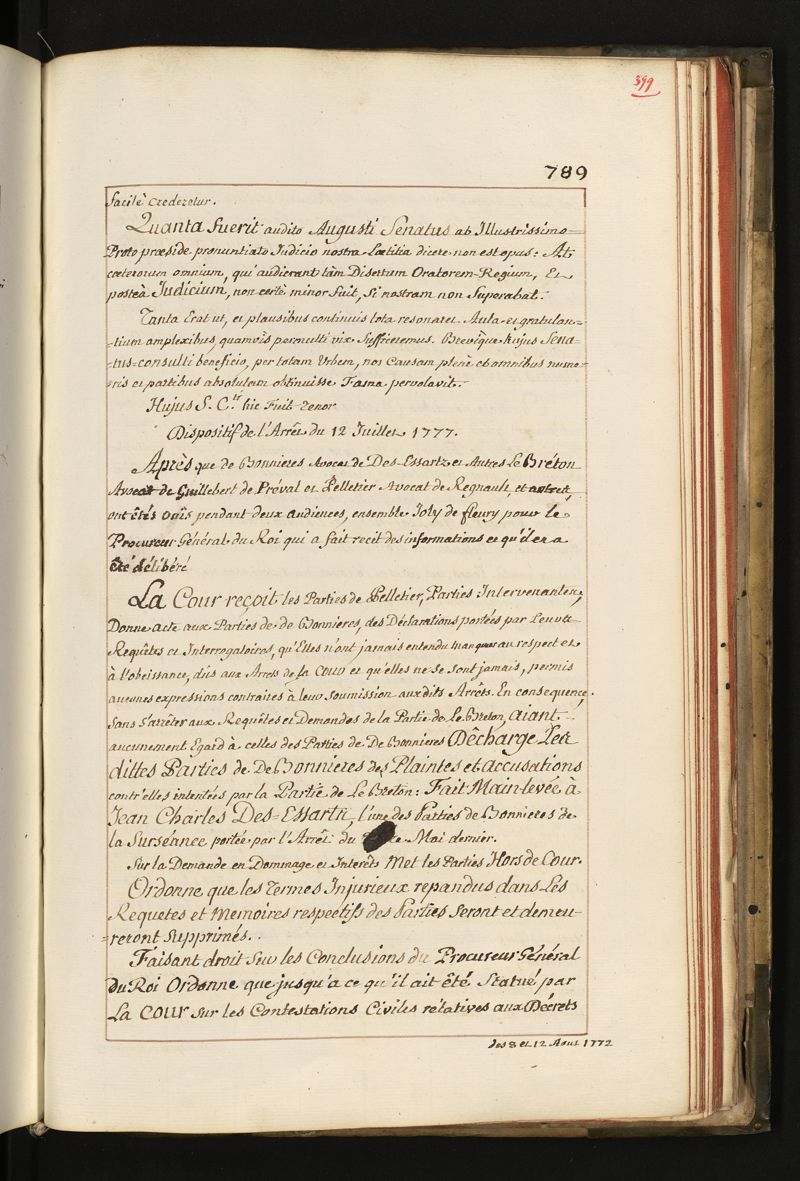 399
789
facilè crederetur.
Quanta fuerit audito Augusti Senatus ab Illustrissimo
Proto præside pronuntiato Judicio nostra Lœtitia dicere non est opus: At
cœterorum omnium, qui audierant tàm Disertum Oratorem Regium, Et
posteà Judicium, non certè minor fuit, Si nostram non Superabat.
Tanta Erat ut, et plausibus continuis tota resonaret Aula et gratulan-
-tium amplexibus quamvis permulti vix Sufficeremus. Brevique hujus Sena-
-tus-consulti beneficio, per totam Urbem, nos Causam plenè et omnibus nume-
-ris et partibus absolutam obtinuisse Fama pervolavit.
Hujus S. C.ti hic Fuit Tenor
Dispositif de l'Arrêt du 12 Juillet 1777.
Après que de Bonnieres Avocat de Des-Essartz et Autres Le Bréton
Avocat de Guillebert de Préval et Pelletier Avocat de Regnault, et autres,
ont étés ouïs pendant deux audiences, ensemble Joly de fleury pour le
Procureur Général du Roi qui a fait recit des informations et qu'il en a
été délibéré
La Cour reçoit les Parties de Pelletier, Parties Intervenantes,
Donne acte aux Parties de de Bonnieres, des Déclarations portées par Leurs
Requêtes et Interrogatoires, qu'Elles n'ont jamais entendu manquer au respect et
à l'obeissance, dûs aux Arrets de la Cour et qu'elles ne se sont jamais, permis
aucunes expressions contraires à leur soumission auxdits Arrêts. En consequence,
sans s'arrêter aux Requêtes et Demandes de la Partie de Le Breton, aiant
aucunement Egard à celles des Parties de De Bonnieres Décharge Les
dittes Parties de De Bonnieres des Plaintes et Accusations
contr'elles intentées par la Partie de Le Breton: Fait Main-levée à
Jean Charles Des-Essartz, l'une des Parties de Bonnieres de
la Surséance portée par l'Arrêt du Mai dernier.
Sur la Demande en Dommage et Interêts Met les Parties Hors de Cour.
Ordonne que les Termes Injurieux repandus dans Les
Requetes et Memoires respectifs des Parties Seront et demeu-
-reront Supprimés.
Faisant droit Sur les Conclusions du Procureur Général
du Roi Ordonne que jusqu'à ce qu'il ait été Statué par
La Cour sur les Contestations Civiles rélatives aux Décrets
des 8 et 12 Aout 1772